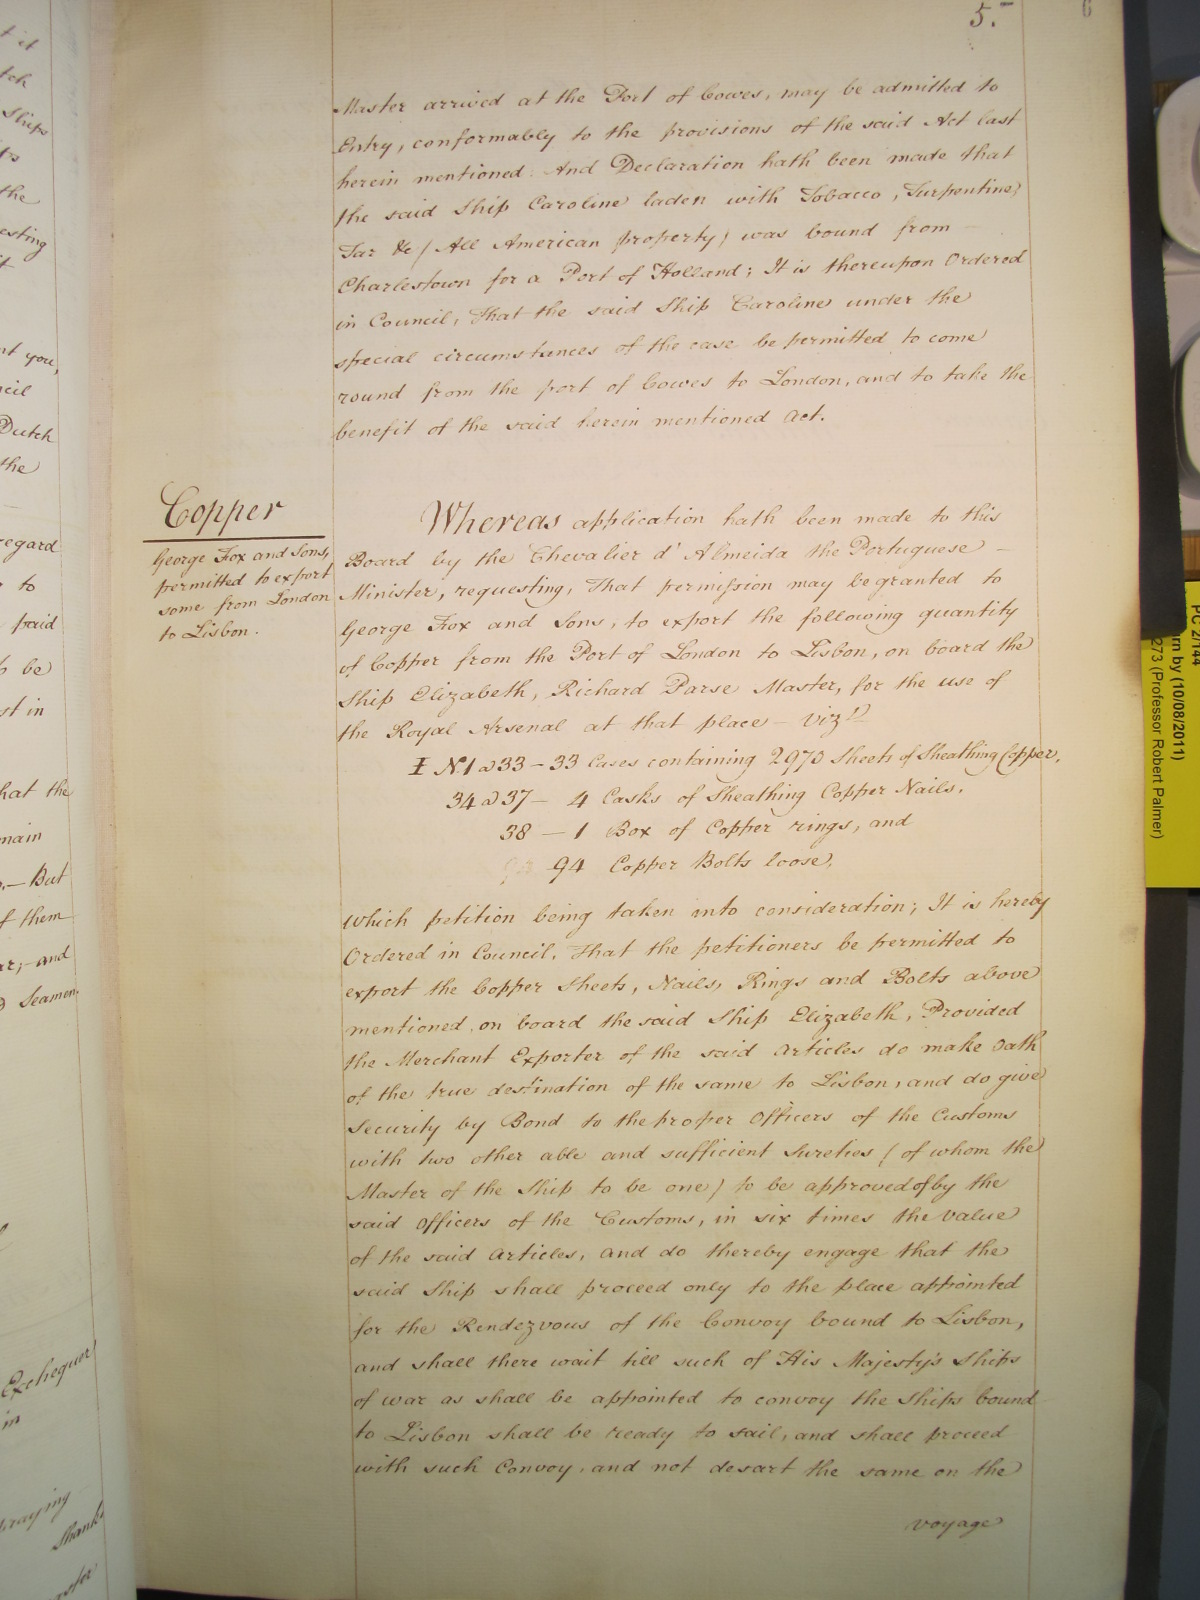 5.
6
Master arrived at the Port of Cowes, may be admitted to
Entry, conformably to the provisions of the said Act last
herein mentioned. And Declaration hath been made that
the said Ship Caroline laden with Tobacco, Turpentine,
Tar &c (All American property) was bound from
Charlestown for a Port of Holland; It is thereupon Ordered
in Council, That the said Ship Caroline under the
special circumstances of the case be permitted to come
round from the port of Cowes to London, and to take the
benefit of the said herein mentioned Act.
Copper
George Fox and Sons,
permitted to export
some from London
to Lisbon.
Whereas application hath been made to this
Board by the Chevalier d'Almeida the Portuguese
Minister, requesting, That permission may be granted to
George Fox and Sons, to export the following quantity
of Copper from the Port of London to Lisbon, on board the
Ship Elizabeth, Richard Parse Master, for the use of
the Royal Arsenal at that place - vizt
I N.1 a 33 - 33 Cases containing 2970 Sheets of Sheathing Copper,
34 a 37 - 4 Casks of Sheathing Copper Nails,
38 - 1 Box of Copper rings, and
94 Copper Bolts loose,
Which petition being taken into consideration; It is hereby
Ordered in Council, That the petitioners be permitted to
export the Copper Sheets, Nails, Rings and Bolts above
mentioned, on board the said Ship Elizabeth, Provided
the Merchant Exporter of the said Articles do make Oath
of the true destination of the same to Lisbon, and do give
Security by Bond to the proper Officers of the Customs
with two other able and sufficient Sureties (of whom the
Master of the Ship to be one) to be approved of by the
said Officers of the Customs, in six times the value
of the said Articles, and do thereby engage that the
said Ship shall proceed only to the place appointed
for the Rendezvous of the Convoy bound to Lisbon,
and shall there wait till such of His Majesty's Ships
of war as shall be appointed to convoy the Ships bound
to Lisbon shall be ready to sail, and shall proceed
with such Convoy, and not desart the same on the
voyage
tch
Ships
the
you,
Dutch
the
regard
to
paid
be
in
the
But
of them
and
Seamen
Exchequer
in
praying
PC 2/144
rn by (10/08/2011)
273 (Professor Robert Palmer)